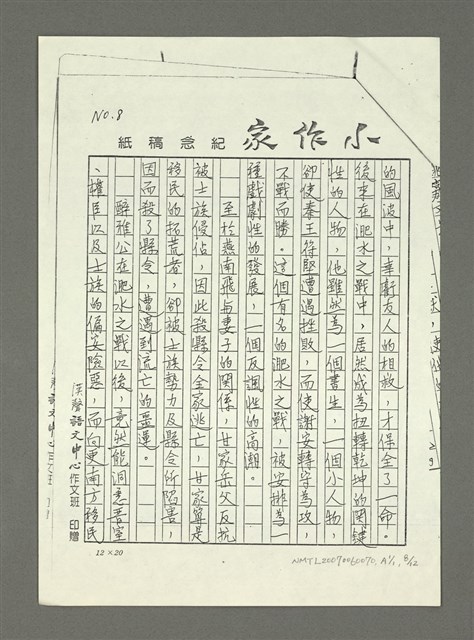 NO.8
小作家 紀念稿紙
的風波中,幸虧友人的相救,才保全了一命。
後來在淝水之戰中,居然成為扭轉乾坤的関鍵
性的人物,他雖然為一個書生,一個小人物,
卻使秦王苻堅遭遇挫敗,而使謝安轉守為攻,
不戰而勝。這個有名的淝水之戰,被安排為一
種戲劇性的發展,一個反諷性的高潮。
至於燕南飛与妻子的関係,甘家岳父反抗
被士族侵佔,因此殺縣令全家逃亡,甘家算是
移民的拓荒者,卻被士族勢力及縣令所陷害,
因而殺了縣令,遭遇到流亡的噩運。
醉雅公在淝水之戰以後,竟然能洞悉晋室
、權臣以及士族的偏安險惡,而向更南方移民
漢聲語文中心作文班 印贈
12×20
NMTL20070060070, A1/1, 8/12